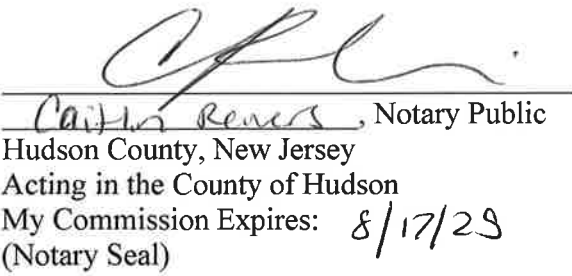 Caitlin Revers, Notary Public
Hudson County, New Jersey
Acting in the County of Hudson
My Commission Expires: 8/17/29
(Notary Seal)